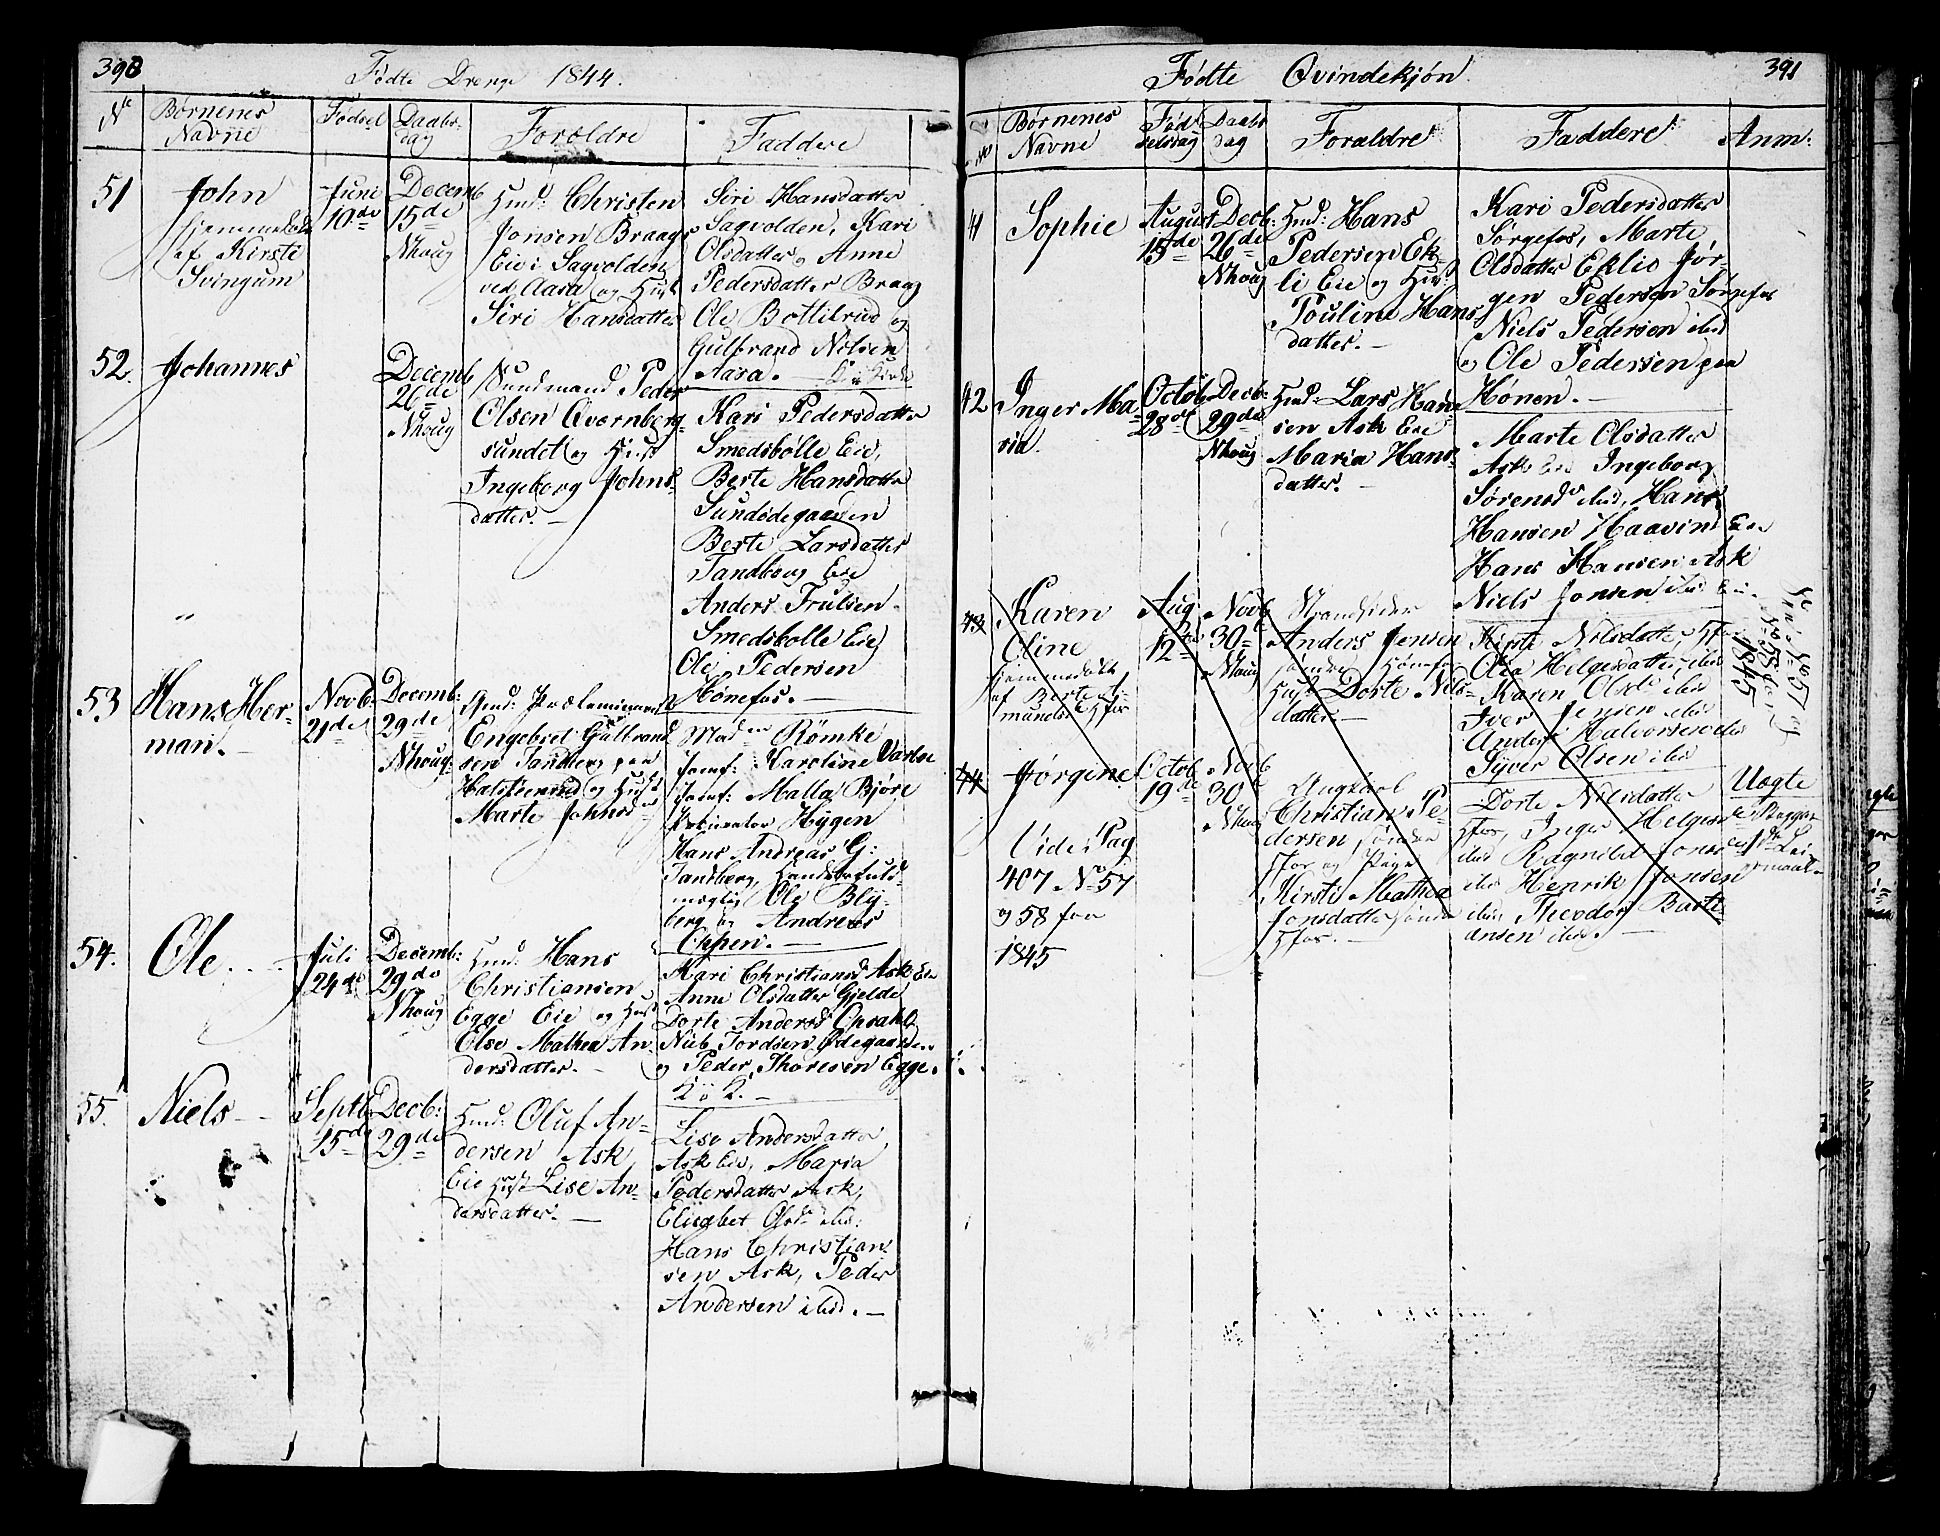 390
Fødte Drenge 1844.
No
Børnenes Navne
Fødsel
Daabsdag
Forældre
Faddere
51
John
hjemmedøbt
af Kirsti
Svingum
Juni
10de
Decemb
15de
Nhoug
Hmd: Christen
Jonsen Braag
Eie i Sagvolden
ved Aasa og Hust
Siri Hansdatter
Siri Hansdatter
Sagvolden, Kari
Olsdatter, Anne
Pedersdatter Braag
Ole Bottilrud og
Gulbrand Nilsen
Aasa.
52.
Johannes
Decemb
26de
Nhoug
Sundmand Peder
Olsen Qvernberg-
sundet og Hust
Ingeborg Johns-
datter.
Kari Pedersdatter
Smedsbølle Eie,
Berte Hansdatter
Sundødegaarden
Berte Larsdatter
Tandberg Eie
Anders Trulsen
Smedsbølle Eie
Ole Pedersen
Hønefos.
53
Hans Her-
man.
Novb
21de
Decemb:
29de
Nhoug
Engebret Gulbrand
sen Tandberg paa
og Hust
Marte Johnsd
Mad Römke
Jomf: Karoline
Jomf: Malla Bjøre
Procurator Hygen
Hans Andreas G:
Tandberg, Handelsfuld-
mægtig Ole Bly-
berg og Andreas
Oppen.
54.
Ole
Juli
24de
Decemb:
29de
Nhoug
Hmd: Hans
Christiansen
Egge Eie og Hust
Else Mathea An-
dersdatter.
Kari Christiansd Ask Eie
Anne Olsdatter Gjelde
Dorte Andersd Opsahl
Niels Tordsen Ødegaarden
og Peder Thoresen Egge.
55.
Niels
Septb
15de
Decb:
29de
Hmd: Oluf An-
dersen Ask
Eie Hust Lise An-
dersdatter.
Lise Andersdatter
Ask Eie, Maria
Pedersdatter Ask,
Elisabet Olsd ibid:
Hans Christian
sen Ask, Peder
Andersen ibid.
Fødte Qvindekjøn.
391
No
Børnenes Navne
Fødselsdag
Daabsdag
Forældre
Faddere
Anm:
41
Sophie
August
15de
Decb:
26de
Nhoug
Hmd: Hans
Pedersen Ek-
li Eie og Hust
Pouline Hans
datter.
Kari Pedersdatter
Sørgefos, Marte
Olsdatter Eklie Jør-
gen Pedersen Sørgefos
Niels Pedersen ibid
og Ole Pedersen paa
Hønen.
42
Inger Ma-
ria.
Octob
28de
Decb:
29de
Nhoug
Hmd: Lars Han-
sen Ask Eie
Maria Hans-
datter.
Marte Olsdatter
Ask Eie Ingeborg
Sørensd ibid, Hans
Hansen Haavind Eie
Hans Hansen Ask
Niels Jonsen ibid Eie.
43
Karen
Oline
hjemmedøbt
Aug:
12te
Novb
30te
Nhoug
Strandsidder
Anders Jensen
søndre Hønefos
Hust Dorte Nils-
datter.
Kirste Nilsdatter Hfos
Olea Helgesdatter ibid
Karen Olsd ibid
Iver Jensen ibid
Anders Halvorsen ibid
Syver Olsen ibid
44
Jørgine
Octob
19de
Novb
30te
Nhoug
Ungkarl
Christian Pe-
dersen søndre
Hfos og Pige
Kirsti Mathea
Jonsdatter søndre
Hfos.
Dorte Nilsdatter
Hfos, Inger Helgesd
ibid Ragnild Jonsd
ibid Henrik Jonsen
ibid Theodor Bart
ansen ibid.
Uægte
Begges
1ste Lei
ermaal
Vide Pag
407 No 57
og 58 for
1845